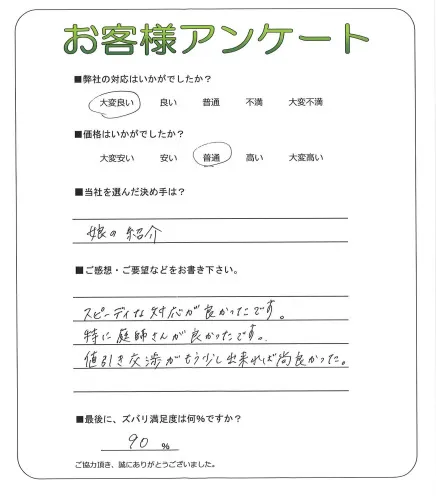 お客様アンケート
■弊社の対応はいかがでしたか？
大変良い 良い 普通 不満 大変不満
■価格はいかがでしたか？
大変安い 安い 普通 高い 大変高い
■当社を選んだ決め手は？
娘の紹介
■ご感想・ご要望などをお書き下さい。
スピーディな対応が良かったです。
特に庭師さんが良かったです。
値引き交渉がもう少し出来れば尚良かった。
■最後に、ズバリ満足度は何%ですか？
90 %
ご協力頂き、誠にありがとうございました。